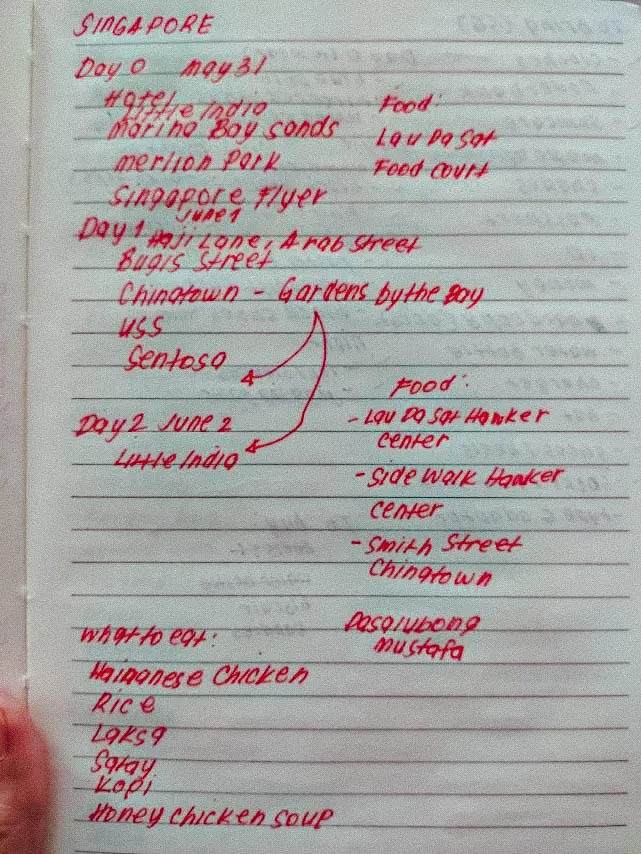 SINGAPORE
Day 0 May 31
Hotel
Little India
Marina Bay Sands
Merlion Park
Singapore Flyer
Food:
Lau Pa Sat
Food Court
Day 1 June 1
Haji Lane, Arab Street
Bugis Street
Chinatown - Gardens by the Bay
USS
Sentosa
Day 2 June 2
Little India
Food:
- Lau Pa Sat Hawker
Center
- Side Walk Hawker
Center
- Smith Street
Chinatown
What to eat:
Hainanese Chicken
Rice
Laksa
Satay
Kopi
Honey Chicken Soup
Pasalubong
Mustafa